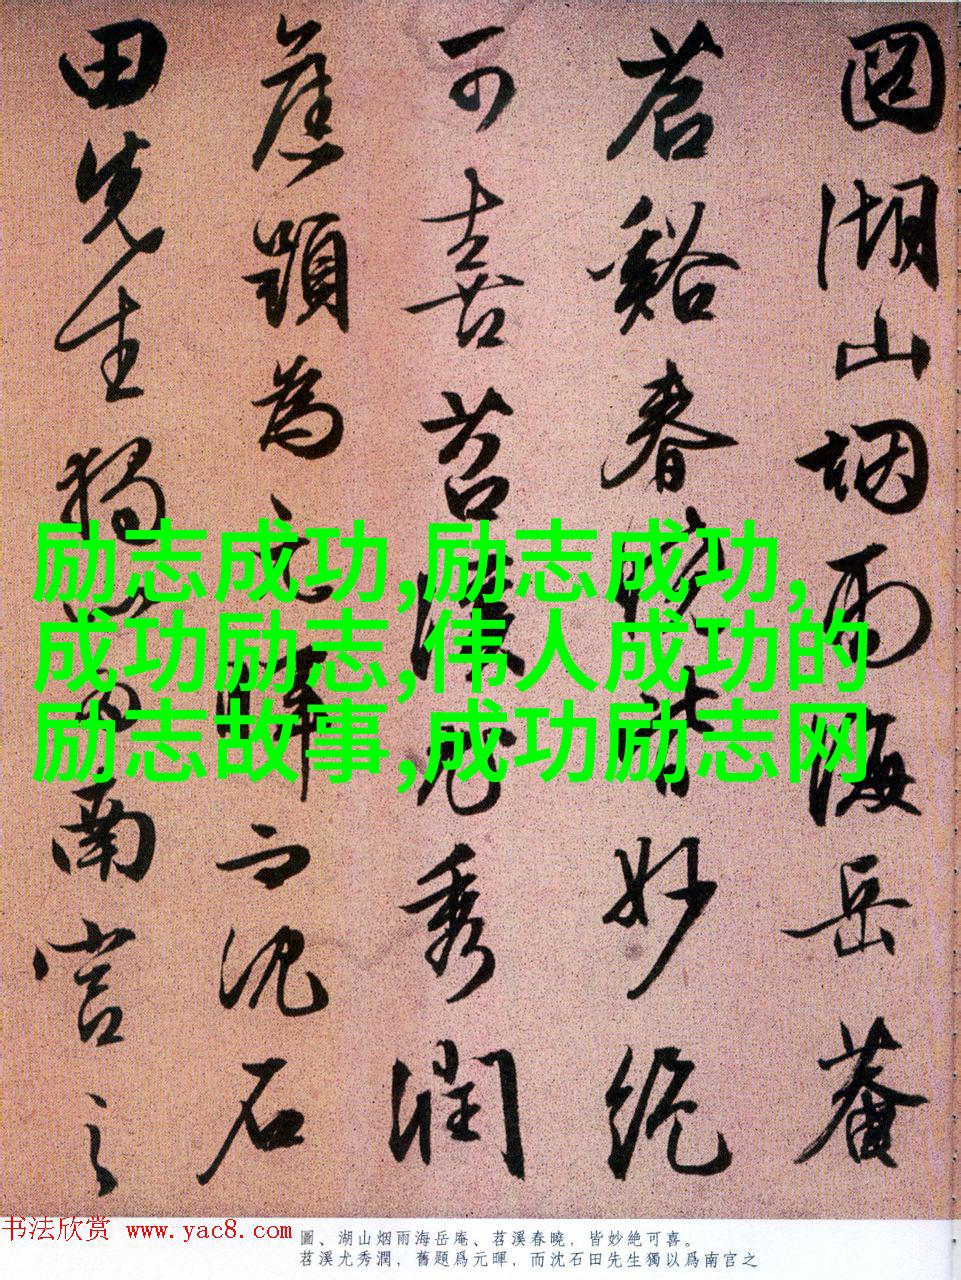 圖湖山烟雨海岳菴
苕谿春曉皆妙絕
可喜苕溪尤秀潤
舊題為元暉而沈石
田先生獨以為南宮之
励志成功,励志成功,
成功励志,伟人成功的
励志故事,成功励志网
书法欣赏 www.yac8.com
圖、湖山烟雨海岳庵、苕溪春曉，皆妙絕可喜。
苕溪尤秀潤，舊題爲元暉，而沈石田先生獨以爲南宫之